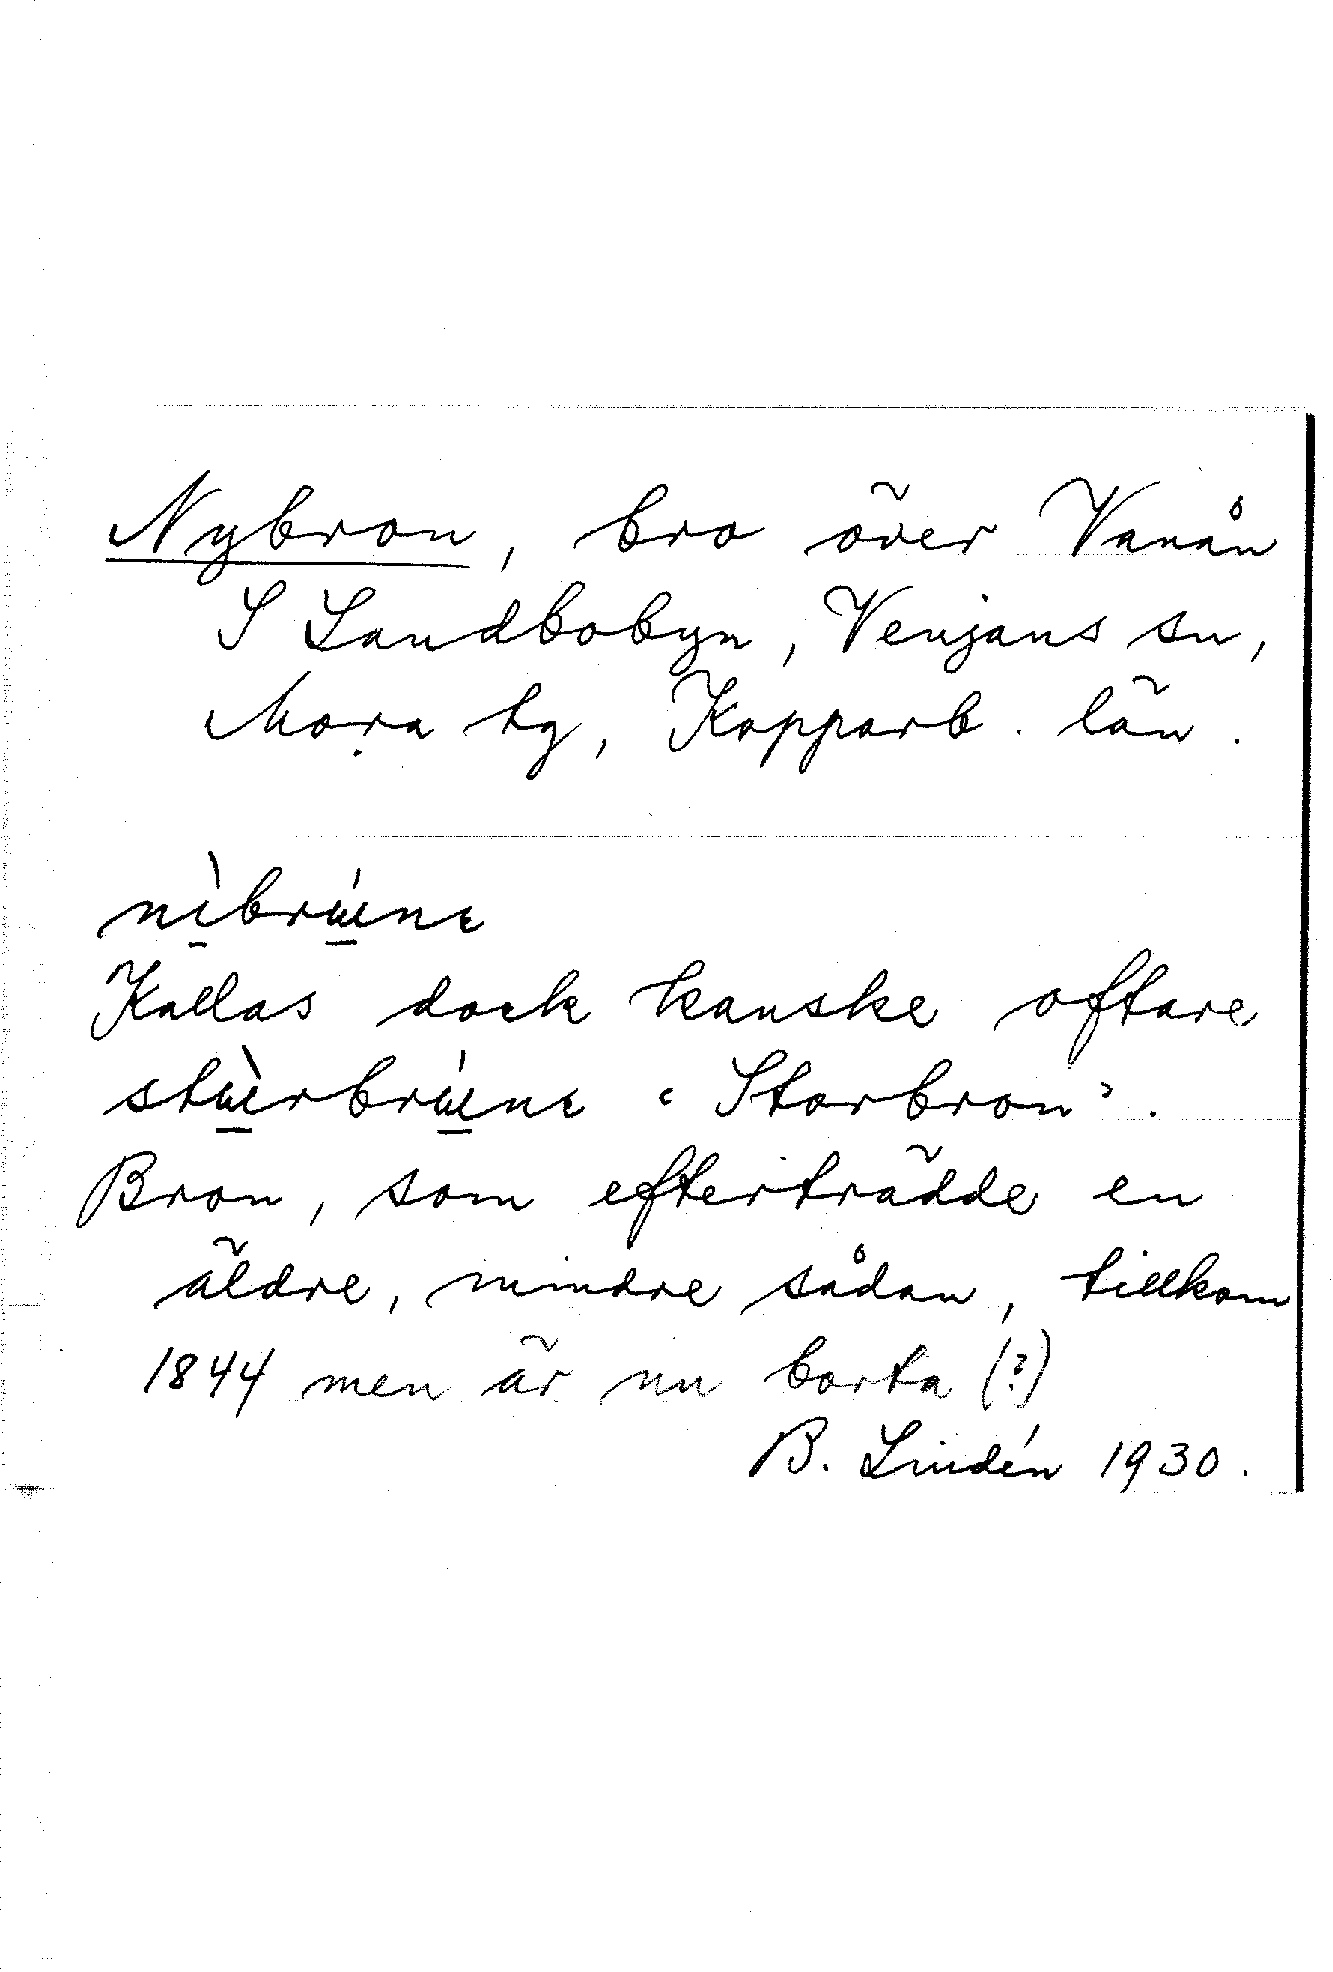 Nybron, bro över Vanån
S Landbobyn, Venjans sn,
Mora tg, Kopparb. län.
nìbrɯ́nɛ
Kallas dock kanske oftare
stɯ̀rbrɯ́nɛ ‘Storbron’.
Bron, som efterträdde en
äldre, mindre sådan, tillkom
1844 men är nu borta (?)
B. Lindén 1930.